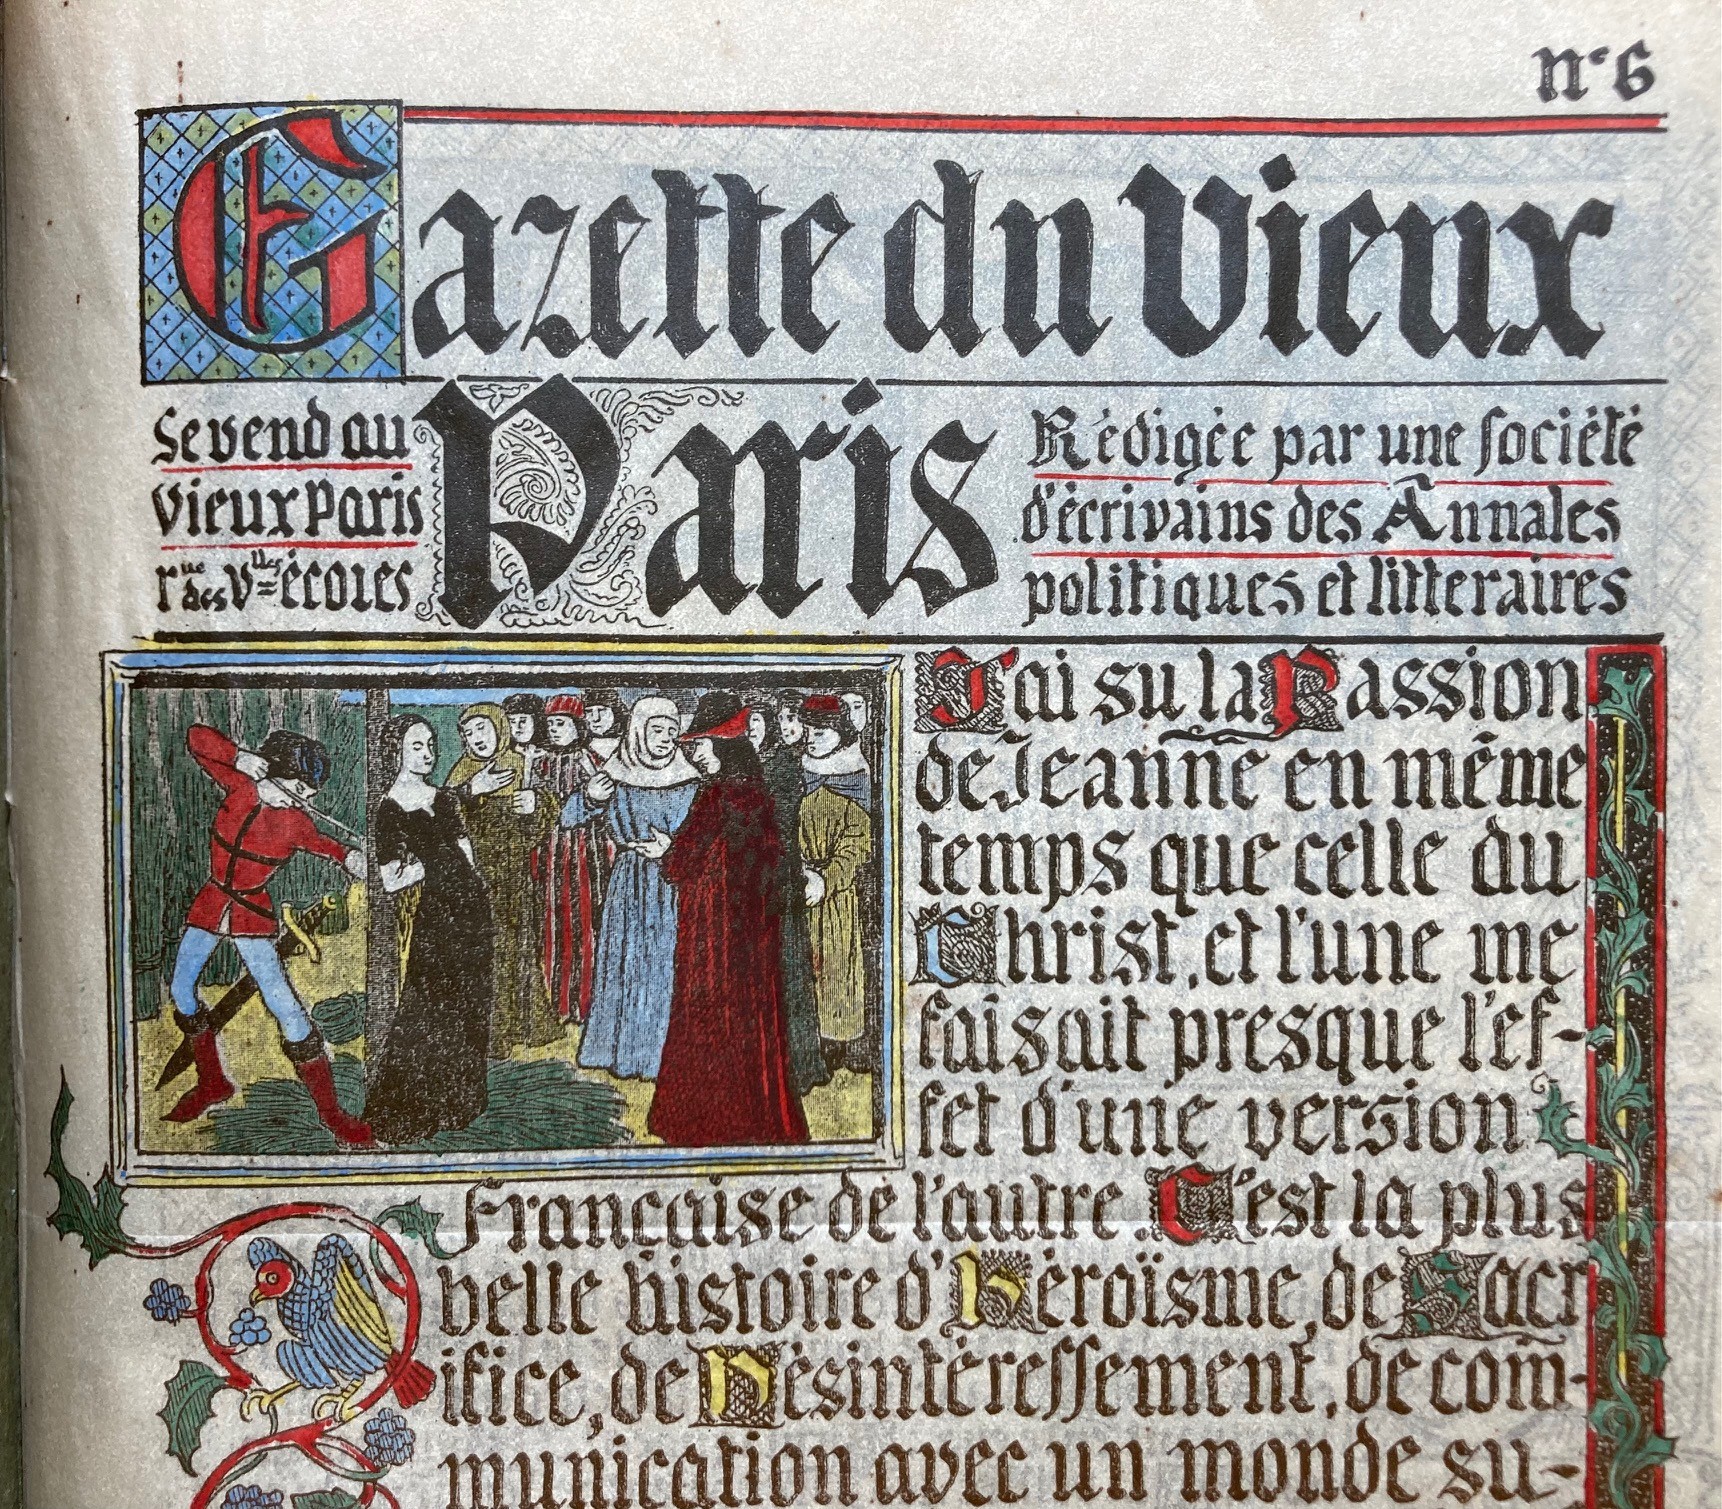 n° 6
Gazette du Vieux
Paris
Se vend au
Vieux Paris
rue des Vlles écoles
Rédigée par une société
d'écrivains des Annales
politiques et littéraires
J'ai su la Passion
de Jeanne en même
temps que celle du
Christ, et l'une me
faisait presque l'ef-
fet d'une version
Française de l'autre. C'est la plus
belle histoire d'Héroïsme, de Sacr
ifice, de Désintéressement, de com-
munication avec un monde su-